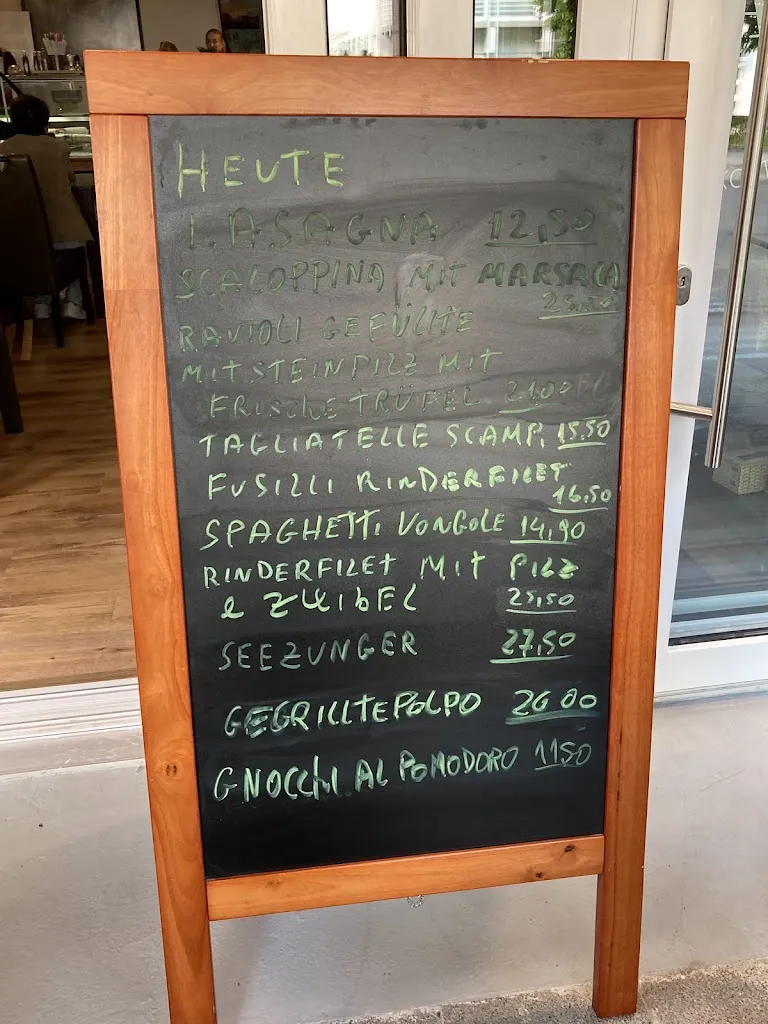 HEUTE
LASAGNA 12,50
SCALOPPINA MIT MARSALA
RAVIOLI GEFÜLLTE
MIT STEINPILZ MIT
FRISCHE TRÜFEL 21.00
TAGLIATELLE SCAMPI 15.50
FUSILLI RINDERFILET
16,50
SPAGHETTI VONGOLE 14,90
RINDERFILET MIT PILZ
& ZWIBEL 25,50
SEEZUNGER 27,50
GEGRILLTE POLPO 26 00
GNOCCHI AL POMODORO 11 50